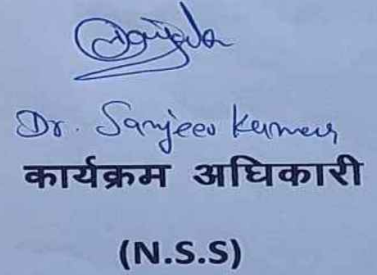 Dr. Sanjeev Kumar
कार्यक्रम अधिकारी
(N.S.S)